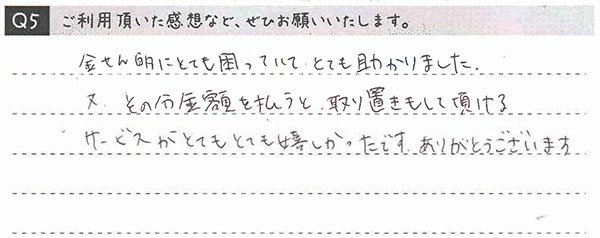 Q5 ご利用頂いた感想など、ぜひお願いいたします。
金せん的にとても困っていて、とても助かりました.
又、その分金額を払うと、取り置きもして頂ける
サービスがとてもとても嬉しかったです。ありがとうございます